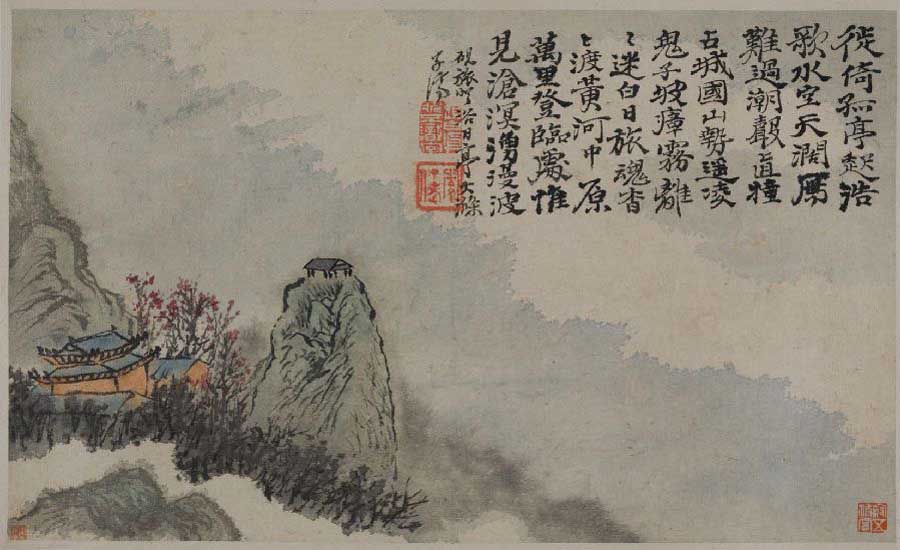 徙倚孤亭起浩
歌水空天濶鴈
難過潮聲直撞
占城國山勢遥凌
鬼子坡瘴霧離
〻迷白日旅魂杳
〻渡黄河中原
萬里登臨處惟
見滄溟湧漫波
硯旅浴日亭大滌
子濟